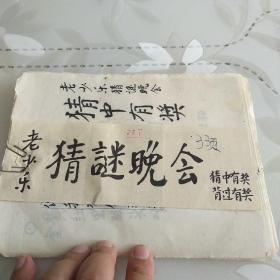 老少乐猜谜晚会
猜中有奖
老少乐
猜謎晚会
猜中有奖
背过有奖